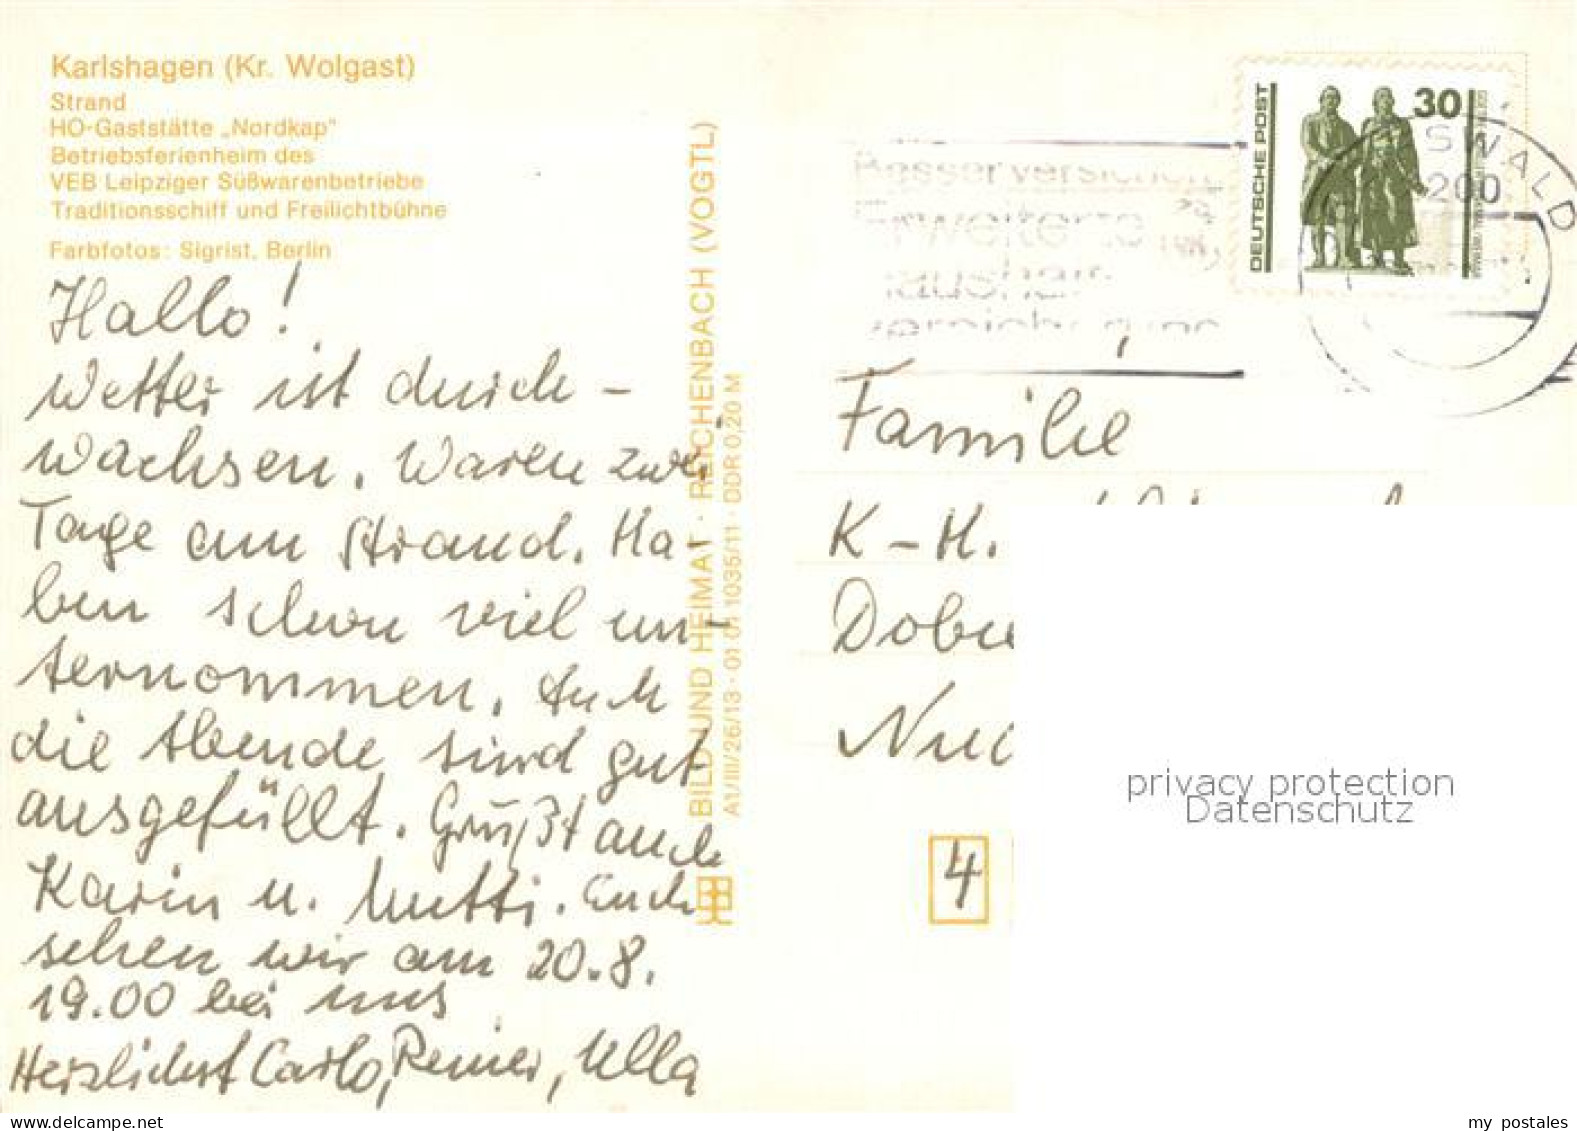 Karlshagen (Kr. Wolgast)
Strand
HO-Gaststätte „Nordkap"
Betriebsferienheim des
VEB Leipziger Süßwarenbetriebe
Traditionsschiff und Freilichtbühne
Farbfotos: Sigrist, Berlin
Hallo!
Wetter ist durch-
wachsen. Waren zwei
Tage am Strand. Ha-
ben schon viel un-
ternommen. Auch
die Abende sind gut
ausgefüllt. Grüßt auch
Karin u. Mutti. Euch
sehen wir am 20.8.
19.00 bei uns
Herzlichst Carlo, Reiner, Ulla
BILD UND HEIMAT · REICHENBACH (VOGTL)
A1/III/26/13 · 01 01 1035/11 · DDR 0,20 M
DEUTSCHE POST
30
SWALD
200
Besser versichert
Erweiterte
Haushalt
versicherung
Familie
K-H.
4
privacy protection
Datenschutz
my postales